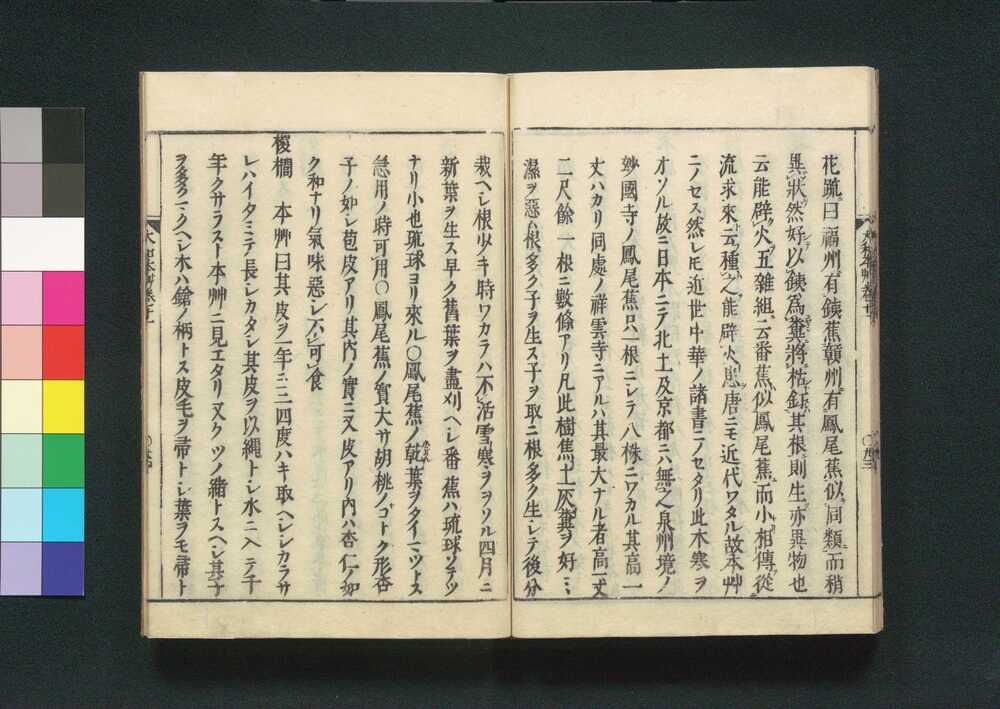 花疏曰福州有鐵蕉贛州有鳳尾蕉似同類而稍
異狀然好以鐵為糞將枯釘其根則生亦異物也
云能辟火五雜組云番蕉似鳳尾蕉而小相傳從
流求來云種之能辟火患唐ニモ近代ワタル故本艸
ニノセス然レ𪜈近世中華ノ諸書ニノセタリ此木寒ヲ
オソル故ニ日本ニテ北土及京都ニハ無之泉州境ノ
妙國寺ノ鳳尾蕉只一根ニシテ八株ニワカル其高一
丈ハカリ同處ノ祥雲寺ニアルハ其最大ナル者高一丈
二尺餘一根ニ數條アリ凡此樹焦土灰糞ヲ好ミ
濕ヲ惡ム根多ク子ヲ生ス子ヲ取ニ根多ク生シテ後分
栽ヘシ根少キ時ワカテハ不活雪寒ヲヲソル四月ニ
新葉ヲ生ス早ク舊葉ヲ盡刈ヘシ番蕉ハ琉球ソテツ
ナリ小也琉球ヨリ來ル〇鳳尾蕉ノ乾葉ヲタイマツトス
急用ノ時可用〇鳳尾蕉ノ實大サ胡桃ノゴトク形杏
子ノ如シ苞皮アリ其内ノ實ニ又皮アリ内ハ杏仁ノ如
ク和ナリ氣味惡シ不可食
椶櫚 本艸曰其皮ヲ一年ニ三四度ハキ取ヘシシカラサ
レハイタミテ長シカタシ其皮ヲ以繩トシ水ニ入テ千
年クサラスト本艸ニ見エタリ又クツノ緒トスヘシ其子
ヲ多クマクヘシ木ハ鎗ノ柄トス皮毛ヲ帚トシ葉ヲモ帚ト